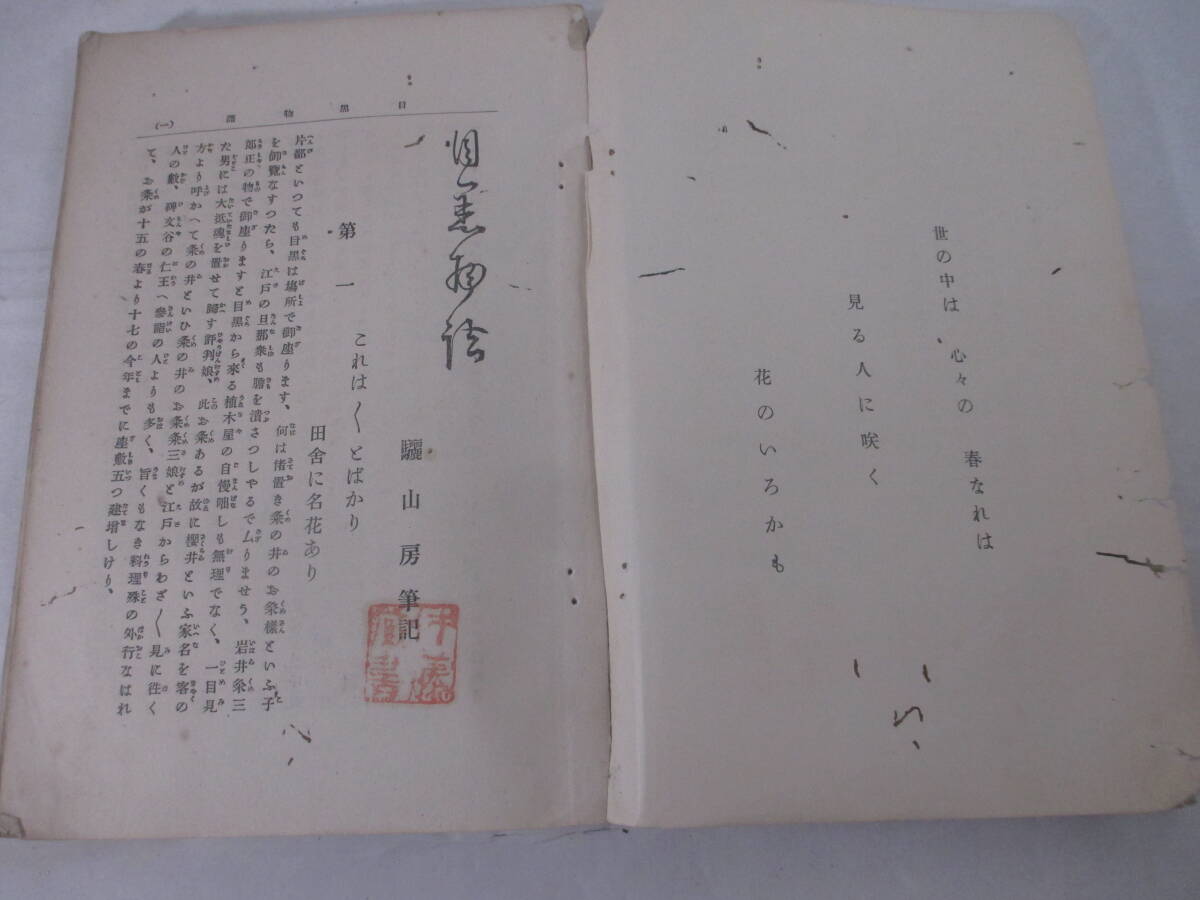 世の中は心々の春なれは
見る人に咲く
花のいろかも
目黒物語
(一)
目黒物語
驪山房筆記
第一
これは〱とばかり
田舍に名花あり
片鄙といつても目黒は塲所で御座ります、何は偖置き粂の井のお粂樣といふ子
を御覽なすつたら、江戸の旦那衆も膽を潰さつしやるでムりませう、岩井粂三
郎正の物で御座りますと目黒から來る植木屋の自慢咄しも無理でなく、一目見
た男には大抵魂を置せて歸す評判娘、此お粂あるが故に櫻井といふ家名を客の
方より呼かへて粂の井といひ粂の井のお粂三娘と江戸からわざ〱見に徃く
人の數、碑文谷の仁王へ參詣の人よりも多く、旨くもなき料理殊の外行なはれ
て、お粂が十五の春より十七の今年までに座敷五つ建增しけり、